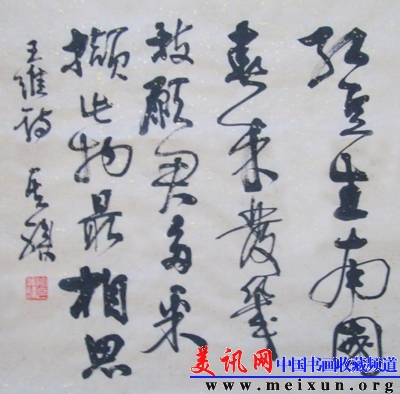 红豆生南國
春来發幾
枝願君多采
撷此物最相思
王維詩
美讯网 中国书画收藏频道
www.meixun.org